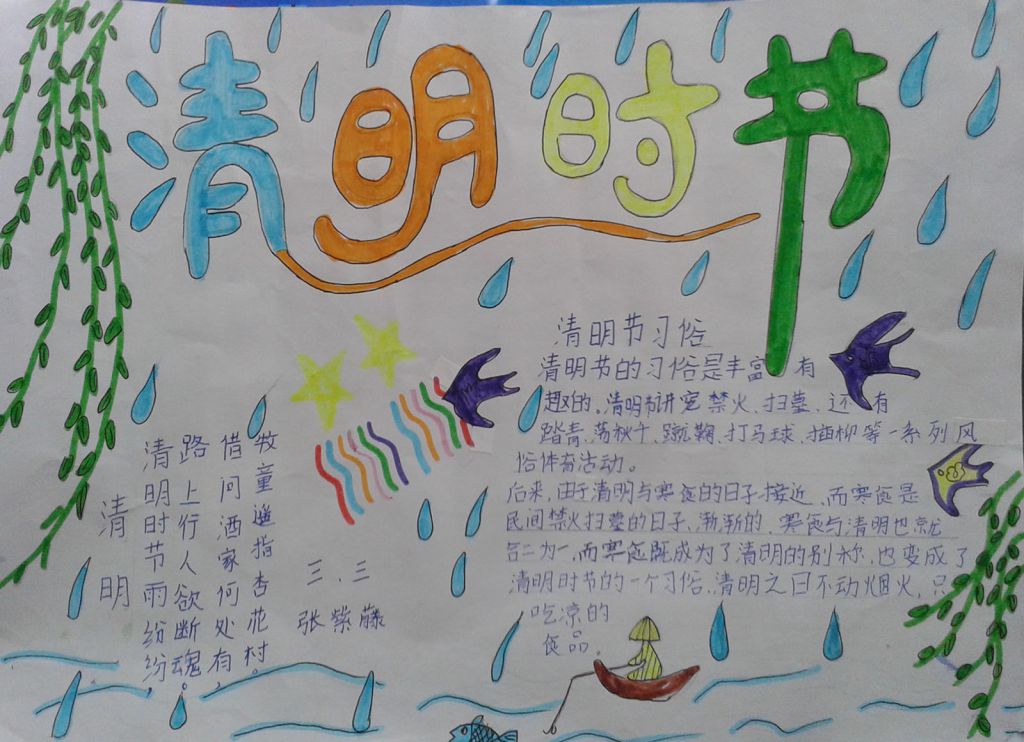 清明时节
清明
清明时节雨纷纷,
路上行人欲断魂。
借问酒家何处有,
牧童遥指杏花村。
三、三
张紫藤
清明节习俗
清明节的习俗是丰富 有
趣的。清明节讲究禁火、扫墓,还 有
踏青、荡秋千、蹴鞠、打马球、插柳等一系列风
俗体育活动。
后来,由于清明与寒食的日子接近,而寒食是
民间禁火扫墓的日子,渐渐的,寒食与清明也就
合二为一,而寒食既成为了清明的别称,也变成了
清明时节的一个习俗,清明之日不动烟火,只
吃凉的
食品。